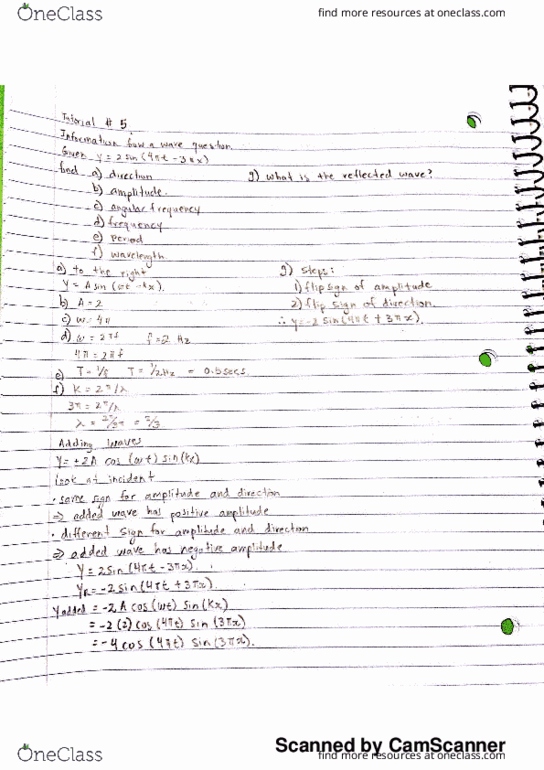 OneClass
find more resources at oneclass.com
Tutorial # 5
Information from a wave question
Given y = 2 sin (4πt - 3πx)
find a) direction
g) what is the reflected wave?
b) amplitude.
c) angular frequency
d) frequency
e) period
f) wavelength
a) to the right
y = A sin (ωt - kx).
b) A = 2
c) ω = 4π
d) ω = 2πf f = 2 Hz
4π = 2πf
e) T = 1/f T = 1/2Hz = 0.5secs
f) k = 2π/λ
3π = 2π/λ
λ = 2π/3π = 2/3
g) steps:
1) flip sign of amplitude
2) flip sign of direction.
∴ y = -2 sin (4πt + 3πx).
Adding waves
y = ±2A cos (ωt) sin (kx)
look at incident
• same sign for amplitude and direction
⇒ added wave has positive amplitude
• different sign for amplitude and direction
⇒ added wave has negative amplitude
y = 2 sin (4πt - 3πx).
yR = -2 sin (4πt + 3πx)
y added = -2 A cos (ωt) sin (kx)
= -2 (2) cos (4πt) sin (3πx)
= -4 cos (4πt) sin (3πx).
Scanned by CamScanner
OneClass
find more resources at oneclass.com